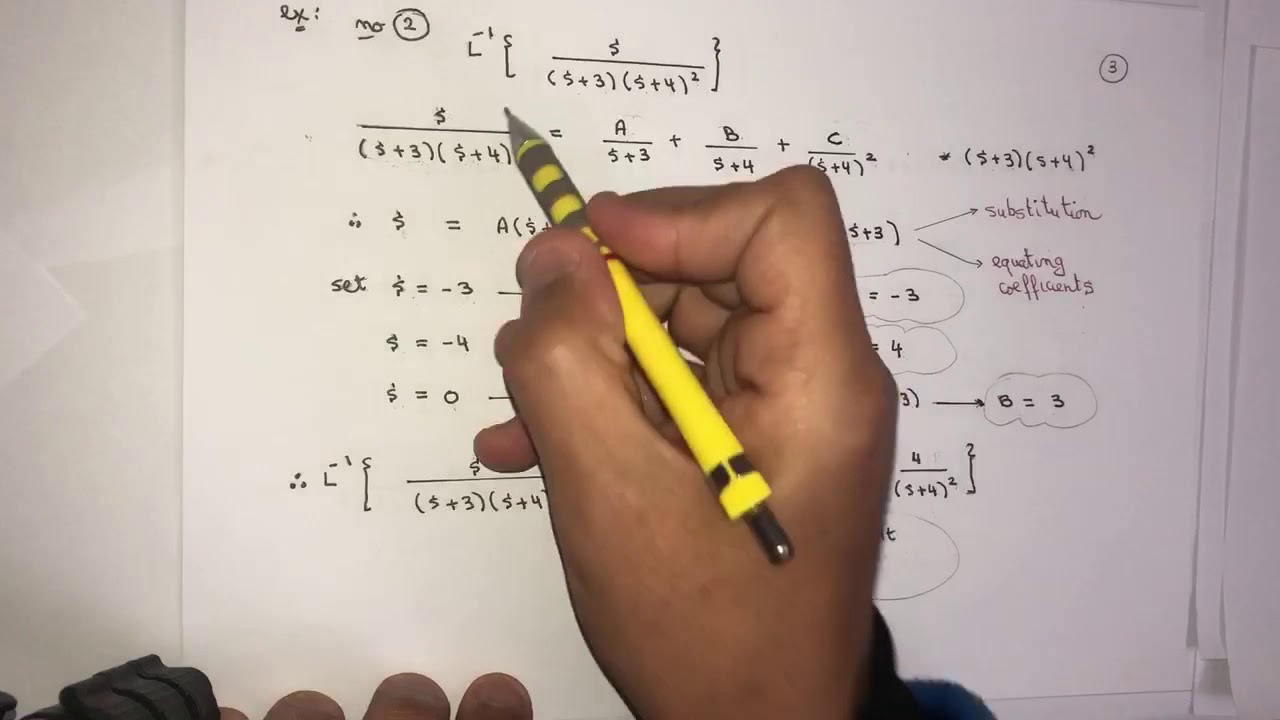 ex: no ②
L⁻¹{ s / (s+3)(s+4)² }
③
s / (s+3)(s+4) = A / s+3 + B / s+4 + C / (s+4)² * (s+3)(s+4)²
∴ s = A(s+ s+3)
substitution
equating
coefficients
set s = -3 = -3
s = -4 = 4
s = 0 3) → B = 3
∴ L⁻¹{ s / (s+3)(s+4 4 / (s+4)² }